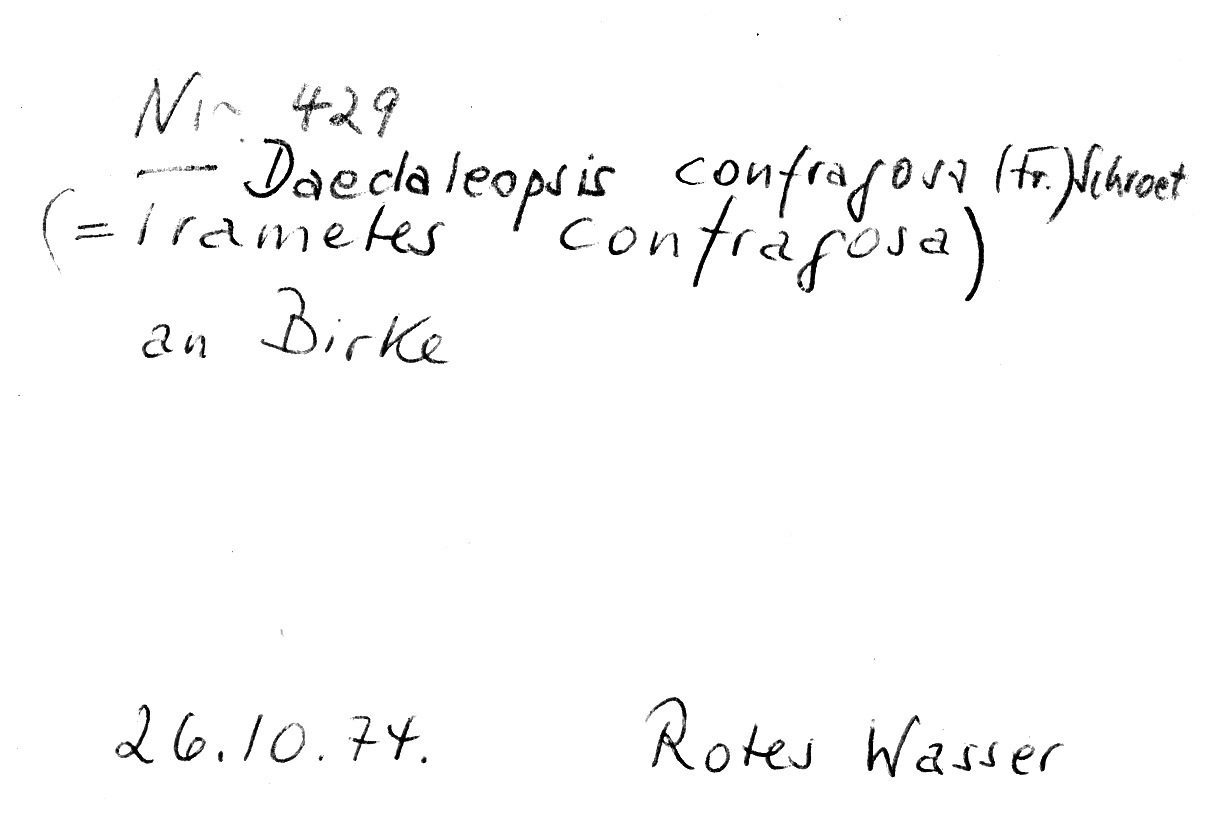 Nr. 429
— Daedaleopsis confragosa (Fr.) Schroet
(= Trametes confragosa)
an Birke
26.10.74. Rotes Wasser